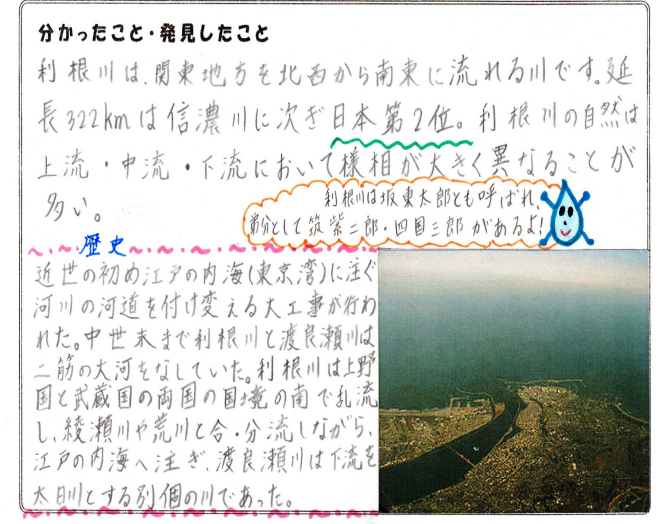 分かったこと・発見したこと
利根川は、関東地方を北西から南東に流れる川です。延
長322kmは信濃川に次ぎ日本第2位。利根川の自然は
上流・中流・下流において様相が大きく異なることが
多い。
利根川は坂東太郎とも呼ばれ、
弟分として筑紫二郎・四国三郎があるよ!
歴史
近世の初め江戸の内海(東京湾)に注ぐ
河川の河道を付け変える大工事が行わ
れた。中世末まで利根川と渡良瀬川は
二筋の大河をなしていた。利根川は上野
国と武蔵国の両国の国境の南で乱流
し、綾瀬川や荒川と合・分流しながら、
江戸の内海へ注ぎ、渡良瀬川は下流を
太日川とする別個の川であった。